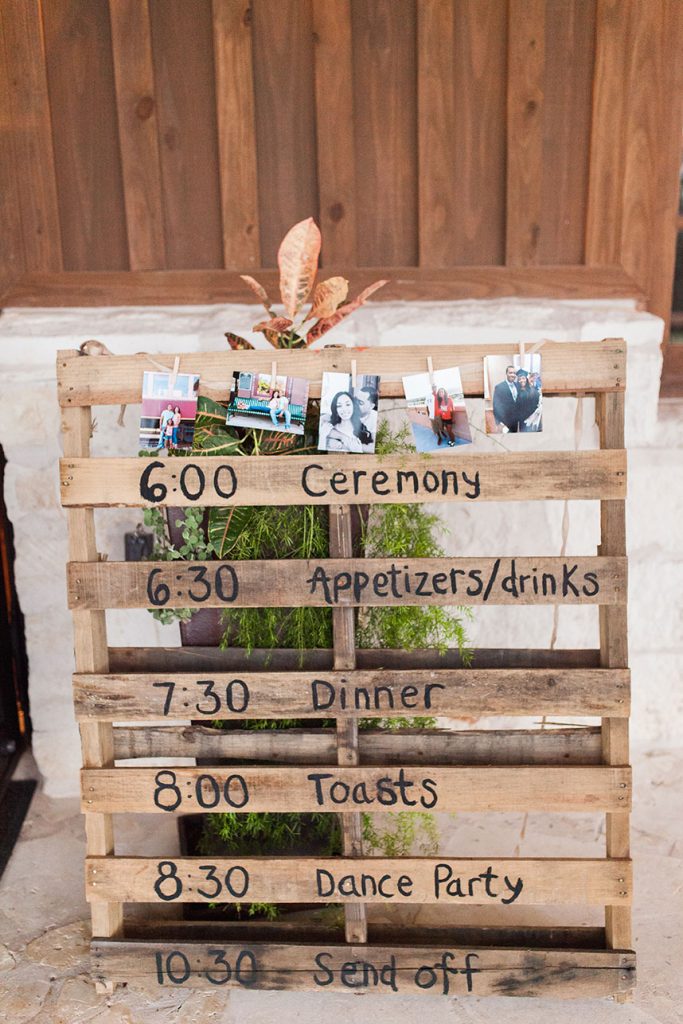 6:00 Ceremony
6:30 Appetizers/drinks
7:30 Dinner
8:00 Toasts
8:30 Dance Party
10:30 Send off